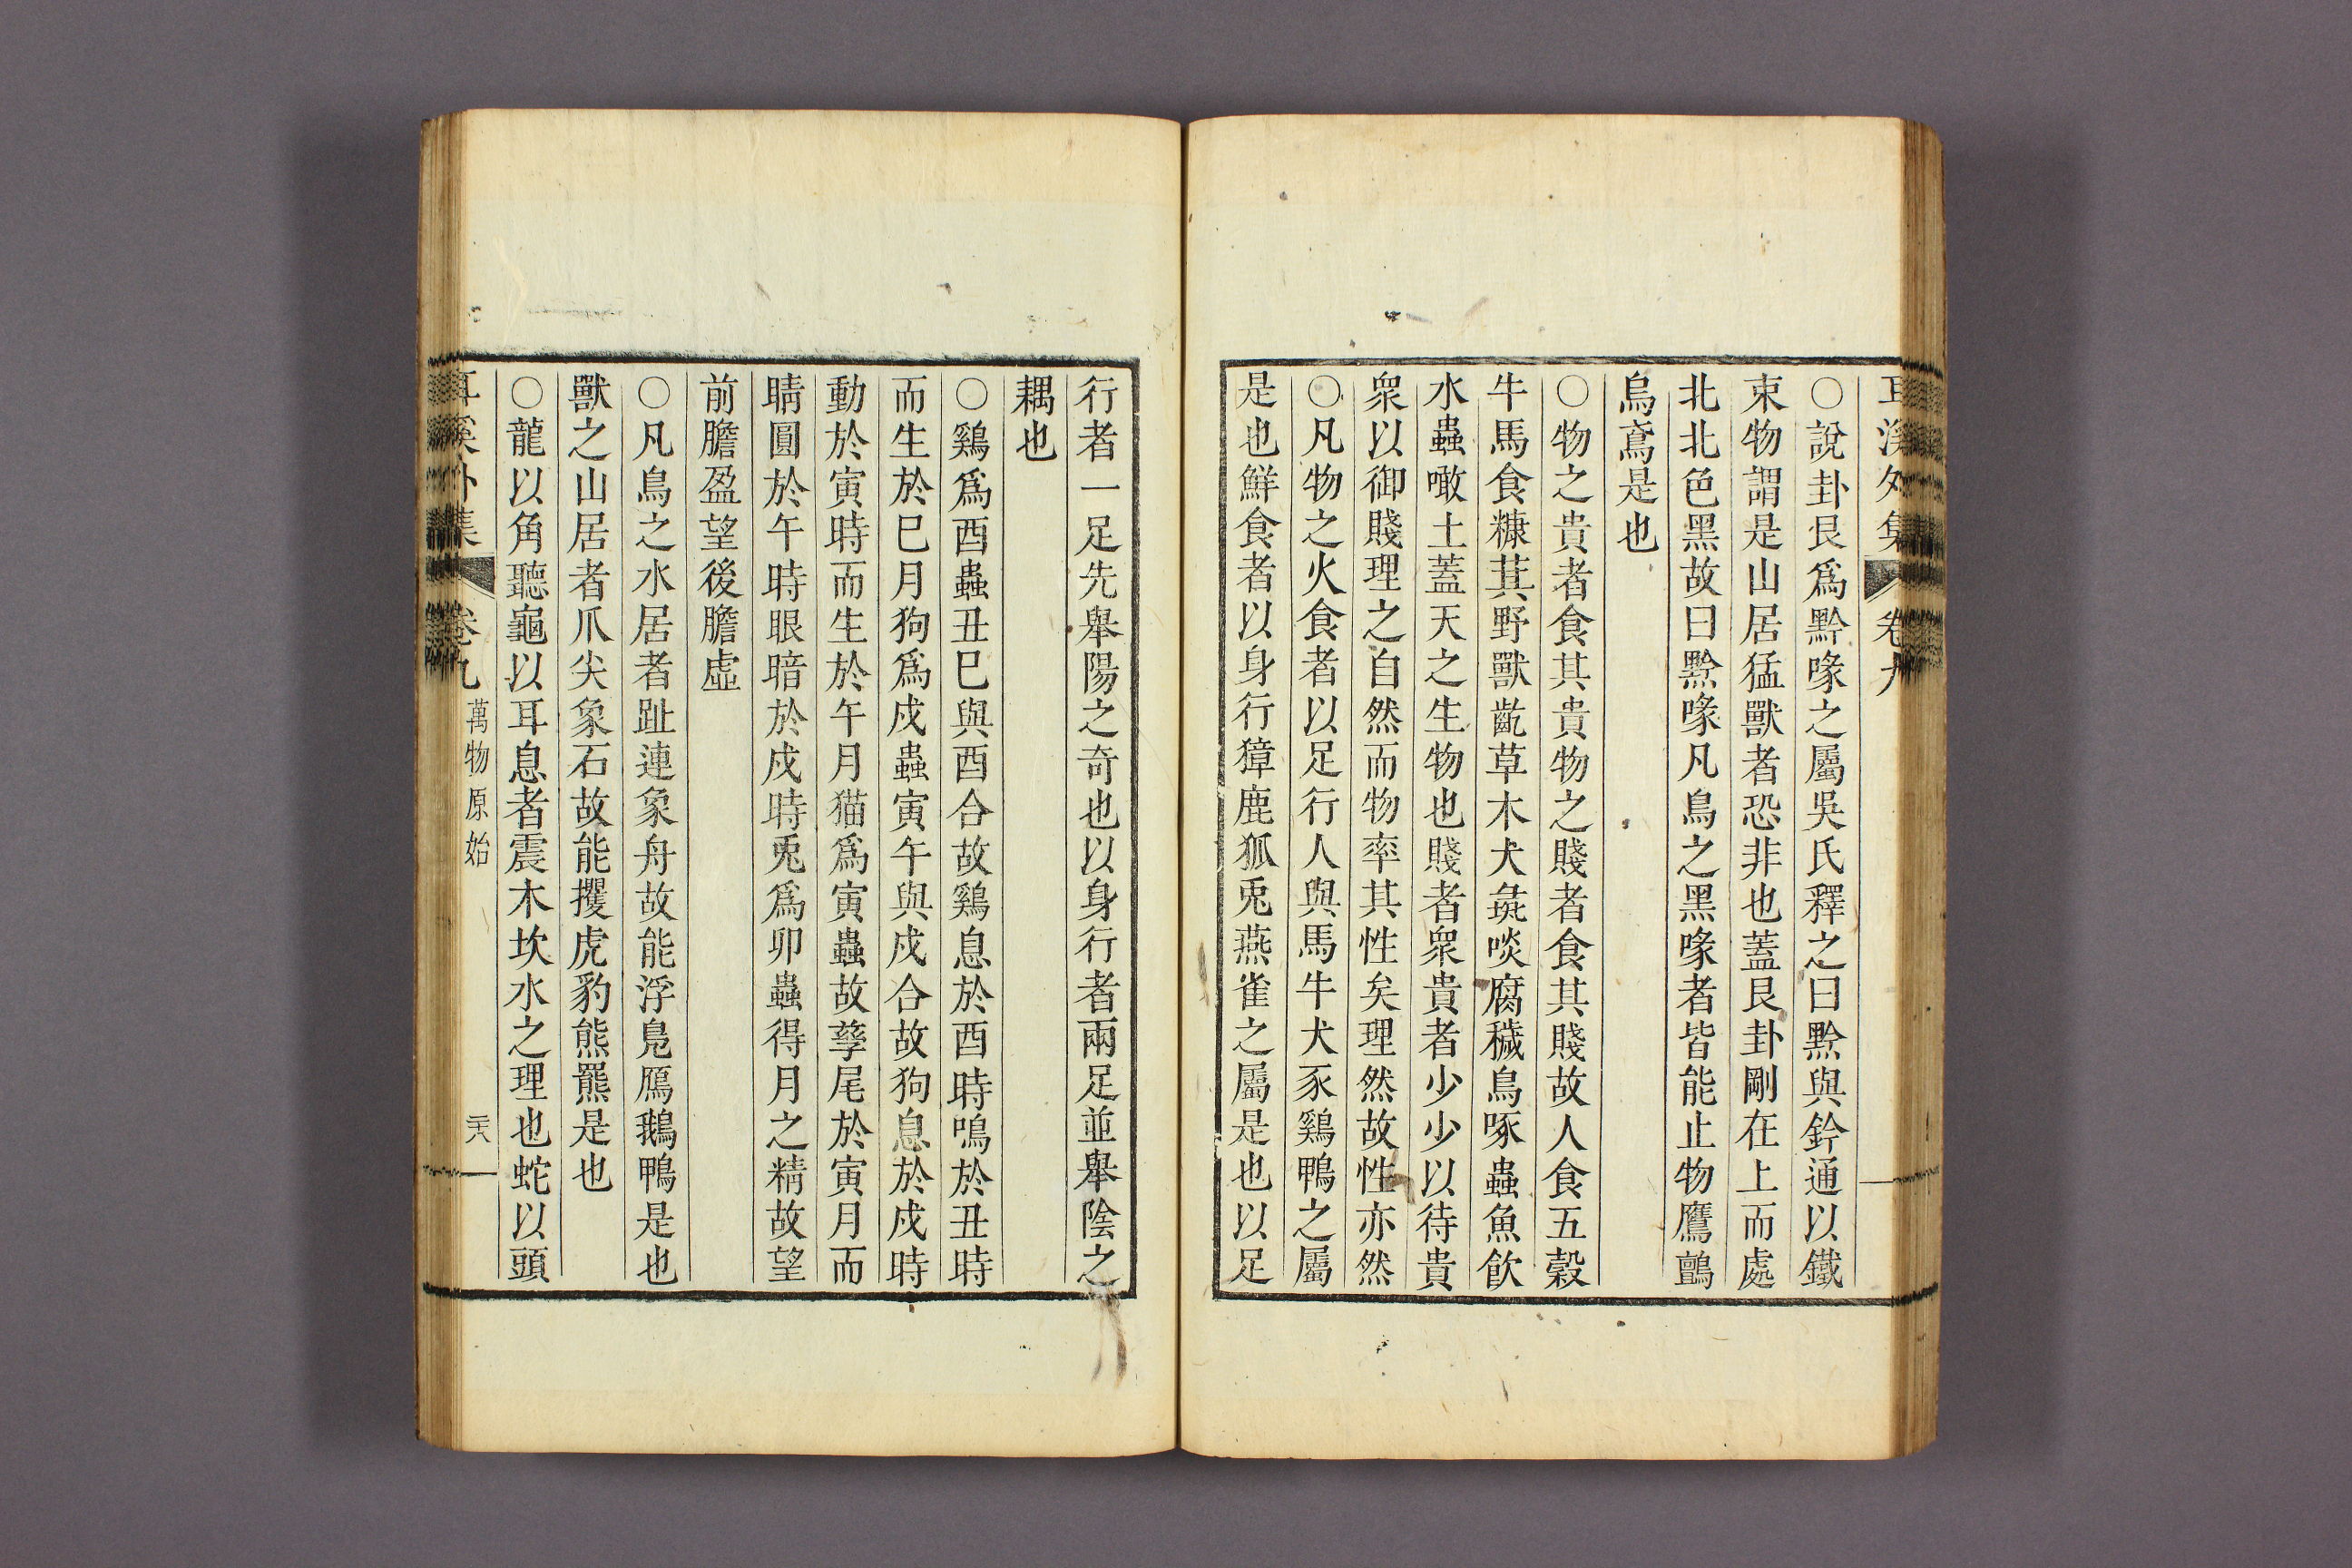 耳溪外集 卷九
○說卦艮爲黔喙之屬吳氏釋之曰黔與鈐通以鐵
束物謂是山居猛獸者恐非也蓋艮卦剛在上而處
北北色黑故曰黔喙凡鳥之黑喙者皆能止物鷹鸇
烏鳶是也
○物之貴者食其貴物之賤者食其賤故人食五穀
牛馬食糠萁野獸齕草木犬彘啖腐穢鳥啄蟲魚飮
水蟲噉土蓋天之生物也賤者衆貴者少少以待貴
衆以御賤理之自然而物率其性矣理然故性亦然
○凡物之火食者以足行人與馬牛犬豕鷄鴨之屬
是也鮮食者以身行獐鹿狐兎燕雀之屬是也以足
行者一足先舉陽之奇也以身行者兩足並舉陰之
耦也
○鷄爲酉蟲丑巳與酉合故鷄息於酉時鳴於丑時
而生於巳月狗爲戌蟲寅午與戌合故狗息於戌時
動於寅時而生於午月猫爲寅蟲故孳尾於寅月而
睛圓於午時眼暗於戌時兎爲卯蟲得月之精故望
前膽盈望後膽虛
○凡鳥之水居者趾連象舟故能浮鳧鴈鵝鴨是也
獸之山居者爪尖象石故能攫虎豹熊羆是也
○龍以角聽龜以耳息者震木坎水之理也蛇以頭
耳溪外集 卷九 萬物原始 二十八